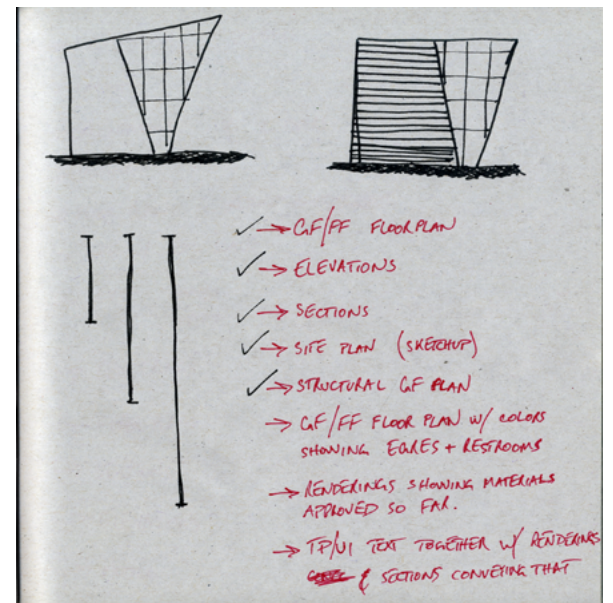 → GF/FF FLOORPLAN
→ ELEVATIONS
→ SECTIONS
→ SITE PLAN (SKETCHUP)
→ STRUCTURAL GF PLAN
→ GF/FF FLOOR PLAN W/ COLORS
SHOWING EGRES + RESTROOMS
→ RENDERINGS SHOWING MATERIALS
APPROVED SO FAR.
→ TEXT TOGETHER W/ RENDERINGS
& SECTIONS CONVEYING THAT